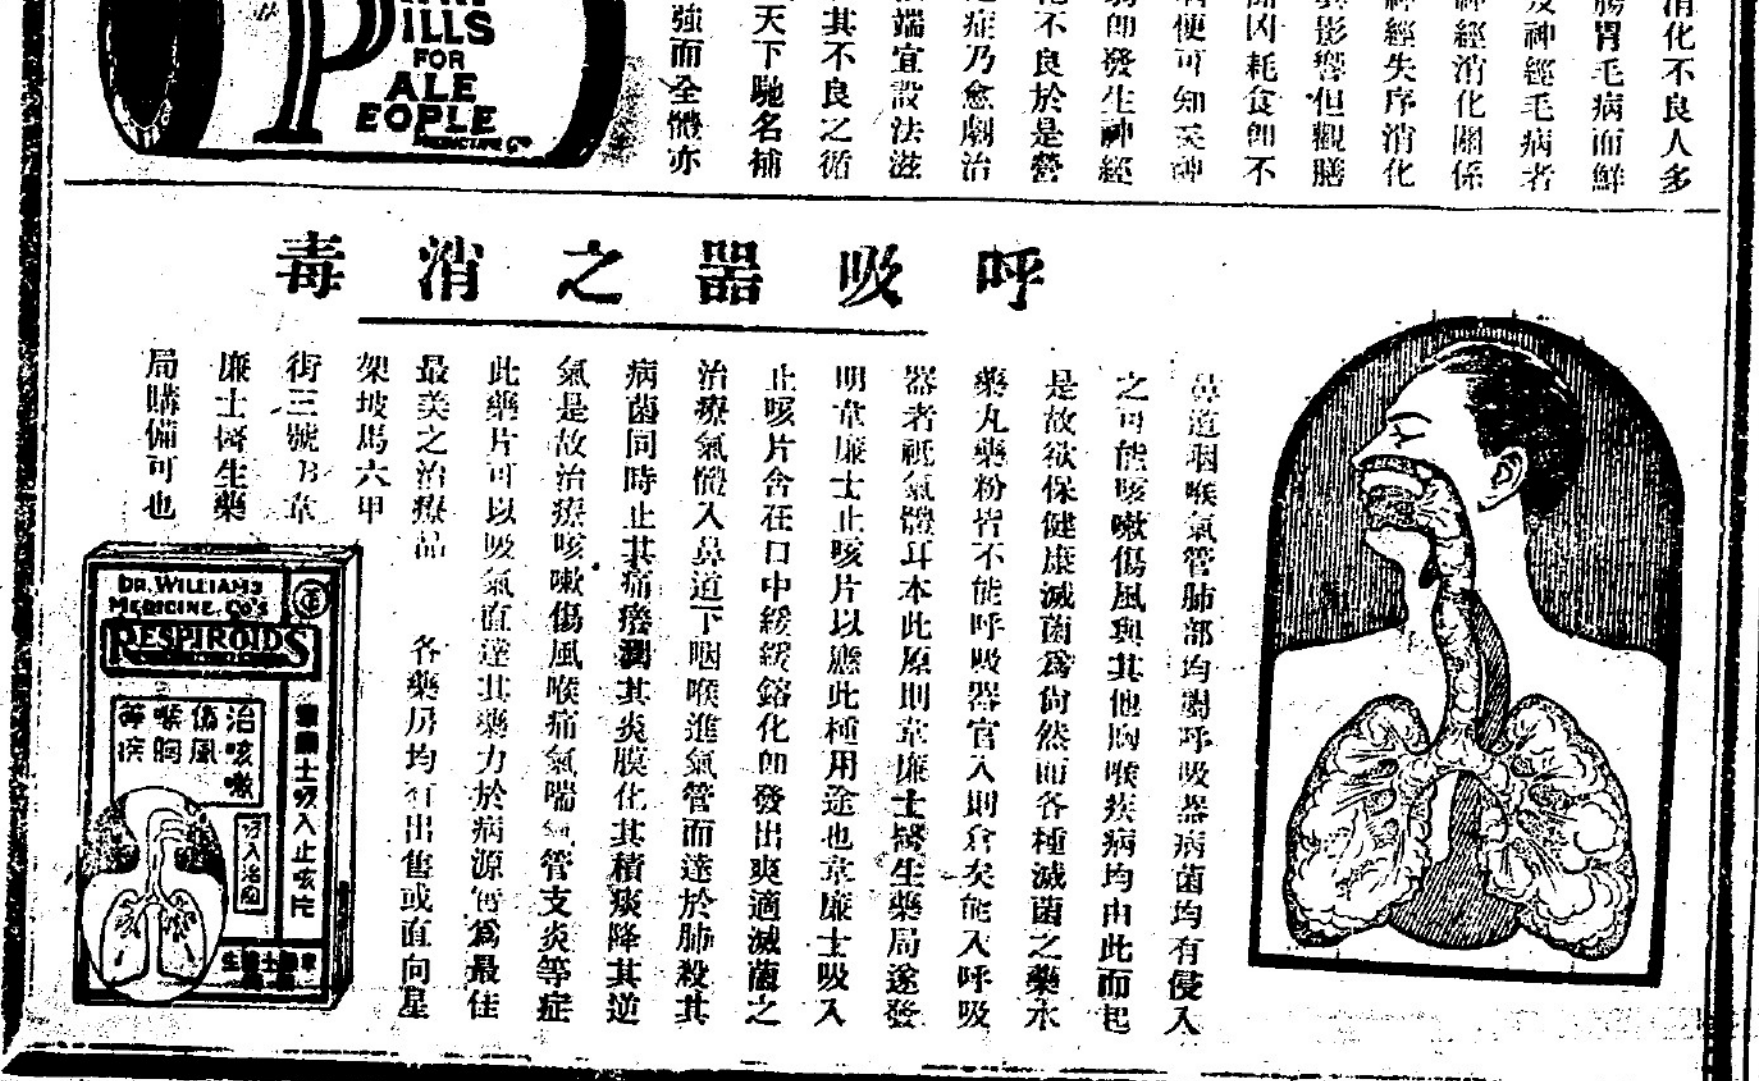 消化不良人多
腸胃毛病而鮮
及神經毛病者
神經消化關係
神經失序消化
影響但觀膳
因耗食卽不
便可知矣神
卽發生神經
化不良於是營
症乃愈劇治
端宜設法滋
其不良之循
天下馳名補
強而全體亦
PILLS
FOR
ALE
EOPLE
MEDICINE Co
呼吸器之消毒
鼻道咽喉氣管肺部均屬呼吸器病菌均有侵入
之可能咳嗽傷風與其他胸喉疾病均由此而起
是故欲保健康滅菌爲尙然而各種滅菌之藥水
藥丸藥粉皆不能呼吸器官入則倉矣能入呼吸
器者祗氣體耳本此原則韋廉士醫生藥局遂發
明韋廉士止咳片以應此種用途也韋廉士吸入
止咳片含在口中緩緩鎔化卽發出爽適滅菌之
治療氣體入鼻道下咽喉進氣管而達於肺殺其
病菌同時止其痛癢潤其炎膜化其積痰降其逆
氣是故治療咳嗽傷風喉痛氣喘氣管支炎等症
此藥片可以吸氣直達其藥力於病源實爲最佳
最美之治療品 各藥房均有出售或直向星
架坡馬六甲
街三號B韋
廉士醫生藥
局購備可也
DR. WILLIAMS
MEDICINE Co's
RESPIROIDS
治咳嗽
傷風
喉胸
等疾
吸入治
韋廉士吸入止咳片